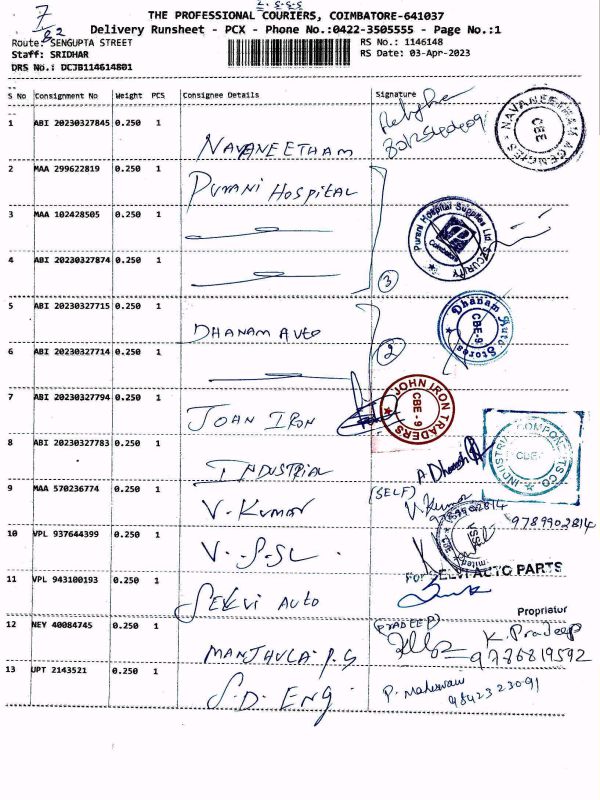 7/82
THE PROFESSIONAL COURIERS, COIMBATORE-641037
Delivery Runsheet - PCX - Phone No.:0422-3505555 - Page No.:1
Route: SENGUPTA STREET RS No.: 1146148
Staff: SRIDHAR RS Date: 03-Apr-2023
DRS No.: DCJB114614801
S No Consignment No Weight PCS Consignee Details Signature
1 ABI 20230327845 0.250 1 NAVANEETHAM
NAVANEETHAM AGENCIES CBE
2 MAA 299622819 0.250 1 PURANI HOSPITAL
3 MAA 102428505 0.250 1
Purani Hospital Supplies Ltd SECURITY Coimbatore
4 ABI 20230327874 0.250 1 3
5 ABI 20230327715 0.250 1 DHANAM AUTO
Dhanam Auto Stores CBE-9
6 ABI 20230327714 0.250 1 2
7 ABI 20230327794 0.250 1 JOAN IRON
JOHN IRON TRADERS CBE - 9
8 ABI 20230327783 0.250 1 INDUSTRIAL
A Dhanush
INDUSTRIAL COMPONENTS CO CBE
9 MAA 570236774 0.250 1 V. KUMAR (SELF) V. Kumar
9789902814
9789902814
10 VPL 937644399 0.250 1 V. S. SL.
11 VPL 943100193 0.250 1 SELVI AUTO
For SELVI AUTO PARTS
Propriator
12 NEY 40084745 0.250 1 MANJHULA. P. S (PRADEEP) K. Pradeep
9786819592
13 UPT 2143521 0.250 1 S. D. ENG P. Maheswari
9842323091